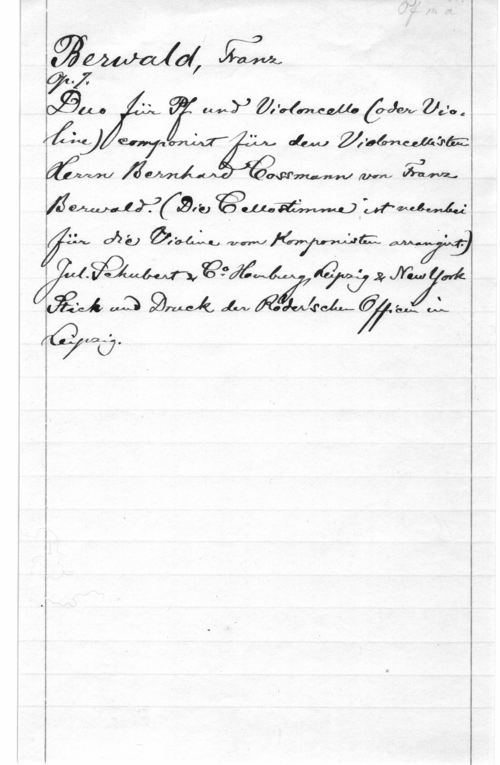 Of m a
Berwald, Franz
Op. 7.
Duo für Pf und Violoncello (oder Vio-
line) componirt für den Violoncellisten
Herrn Bernhard Cossmann von Franz
Berwald. (Die Cellostimme ist nebenbei
für die Violine vom Komponisten arrangirt)
Jul. Schubert & Co Hamburg, Leipzig & New York
Stich und Druck der Röder'schen Officin in
Leipzig.